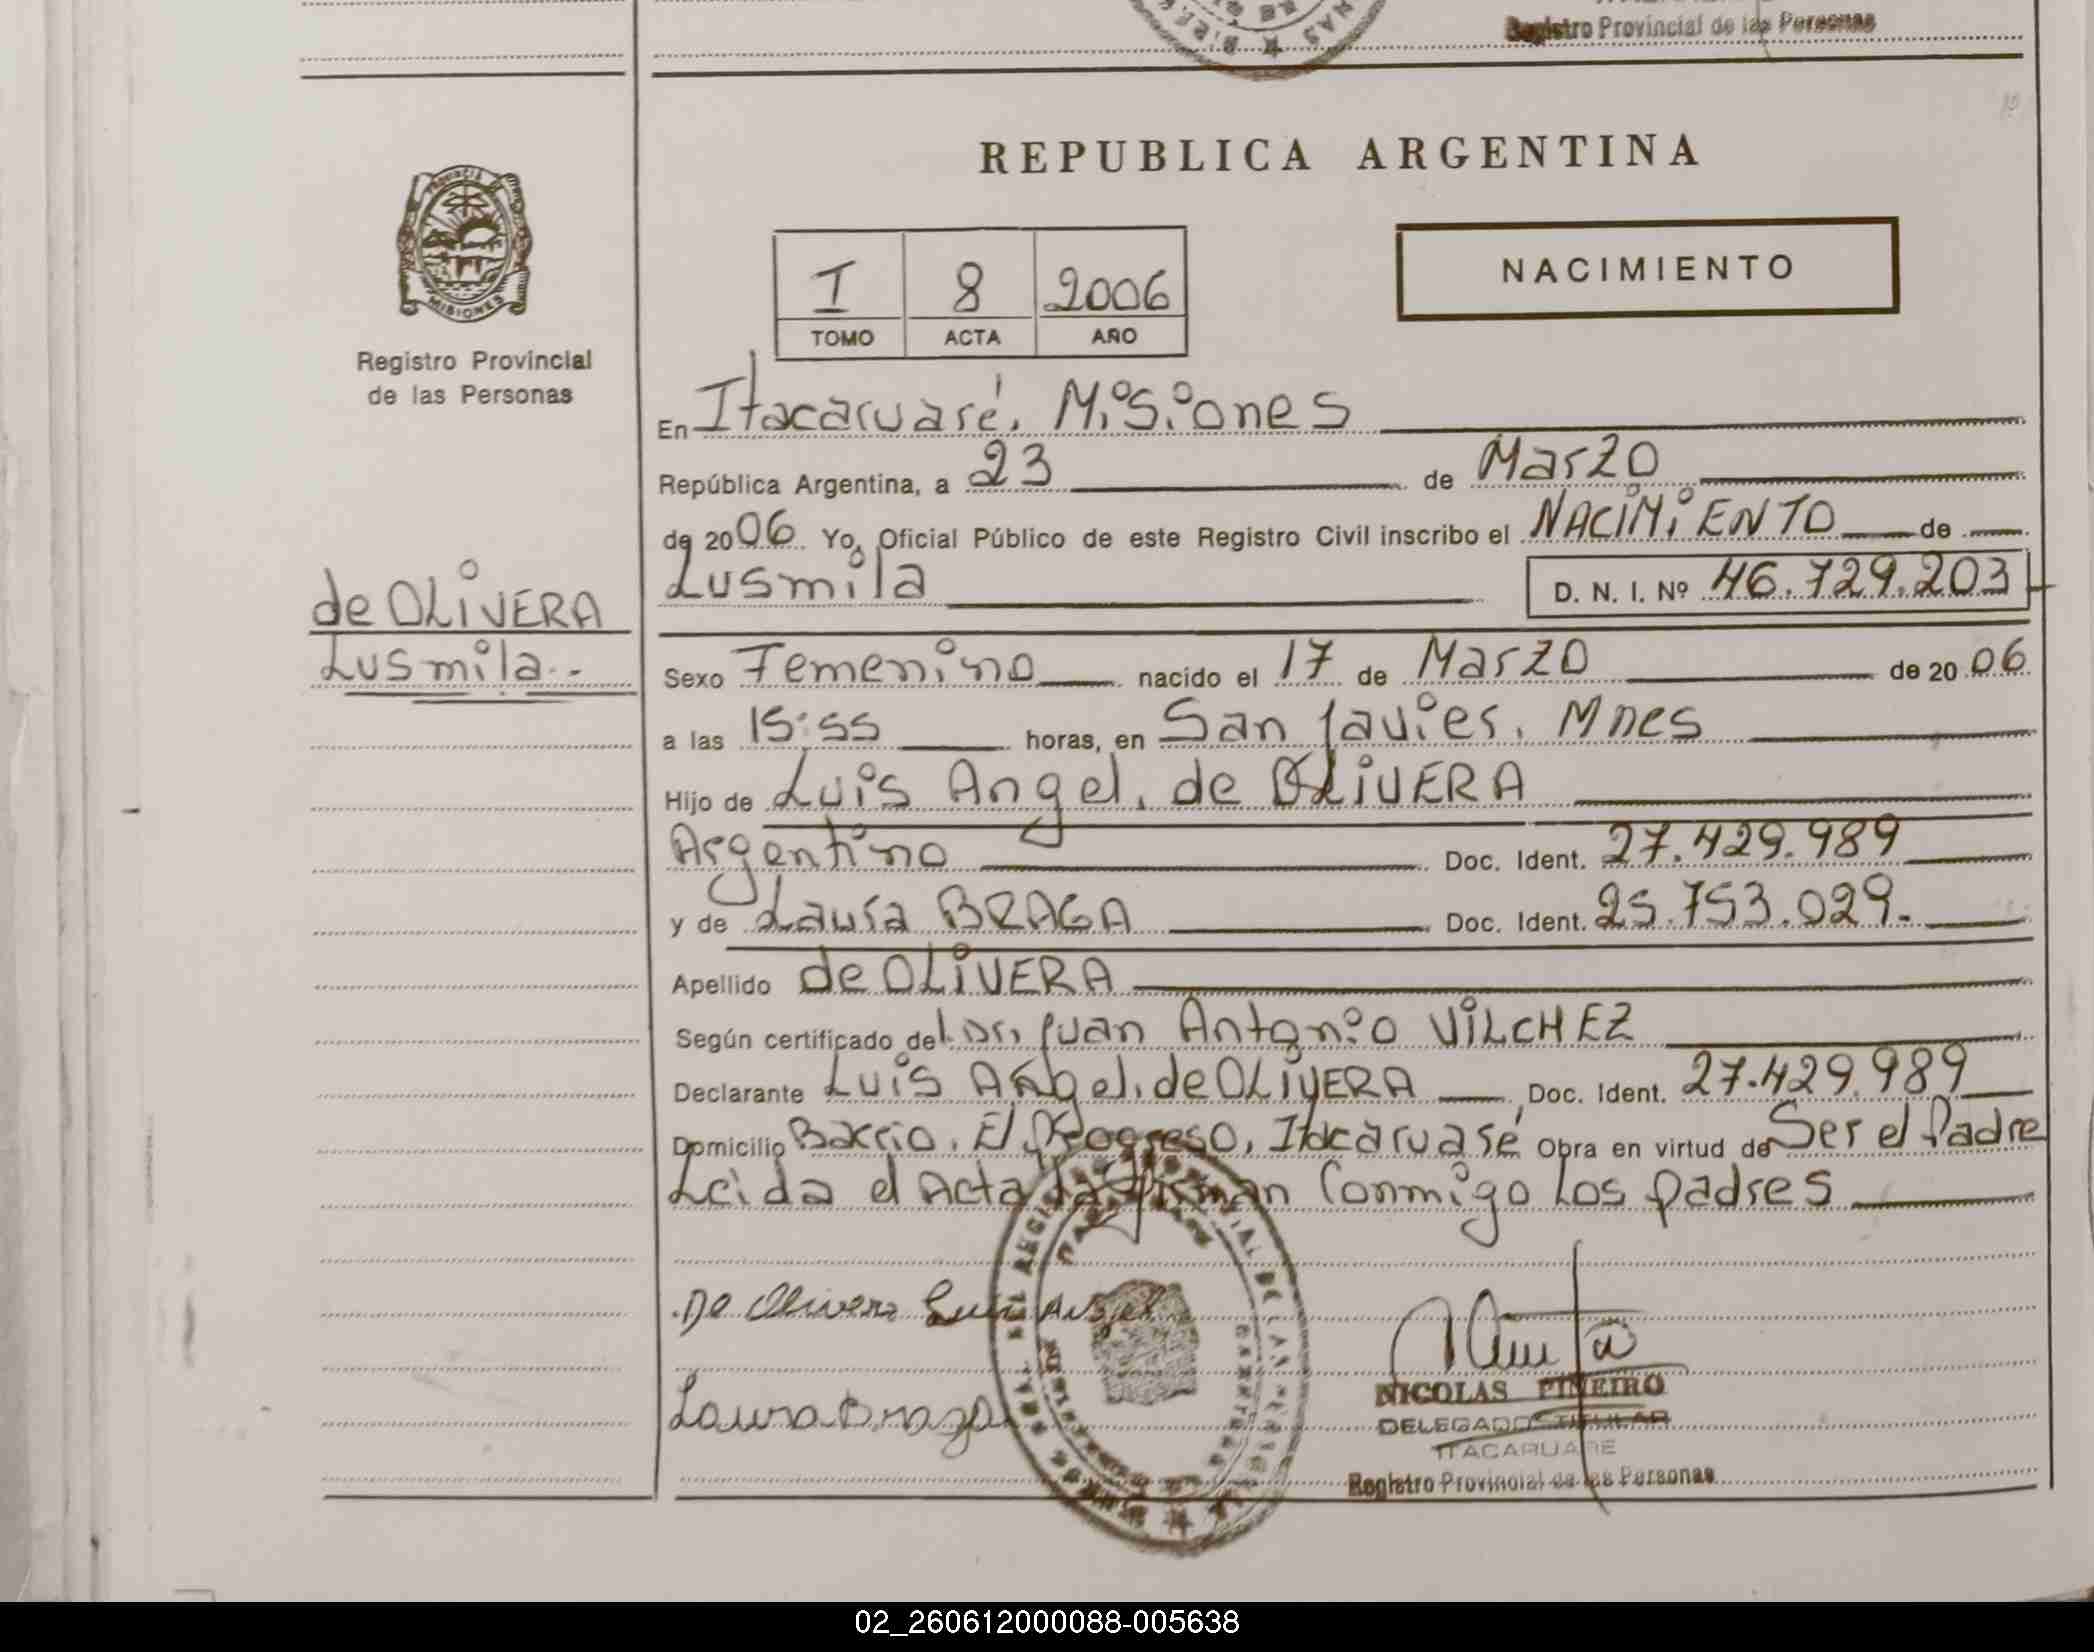 Registro Provincial de las Personas
REPUBLICA ARGENTINA
PROVINCIA DE
MISIONES
Registro Provincial
de las Personas
I 8 2006
TOMO ACTA AÑO
NACIMIENTO
En Itacaruaré, Misiones
República Argentina, a 23 de Marzo
de 2006 Yo, Oficial Público de este Registro Civil inscribo el NACIMiENTO de
Lusmila D. N. I. Nº 46.729.203
de OLiVERA
Lusmila..
Sexo Femenino nacido el 17 de Marzo de 2006
a las 15:55 horas, en San Javier, Mnes
Hijo de Luis Angel, de OLiVERA
Argentino Doc. Ident. 27.429.989
y de Laura BRAGA Doc. Ident. 25.753.029.
Apellido de OLiVERA
Según certificado del Dr, Juan Antonio ViLCHEZ
Declarante Luis Angel, de OLiVERA Doc. Ident. 27.429.989
Domicilio Barrio, El Progreso, Itacaruaré Obra en virtud de Ser el Padre
Leida el Acta la firman Conmigo Los padres
De Olivera Luis Angel
Laura Braga
NICOLAS PIÑEIRO
DELEGADO TITULAR
ITACARUARE
Registro Provincial de las Personas
02_260612000088-005638